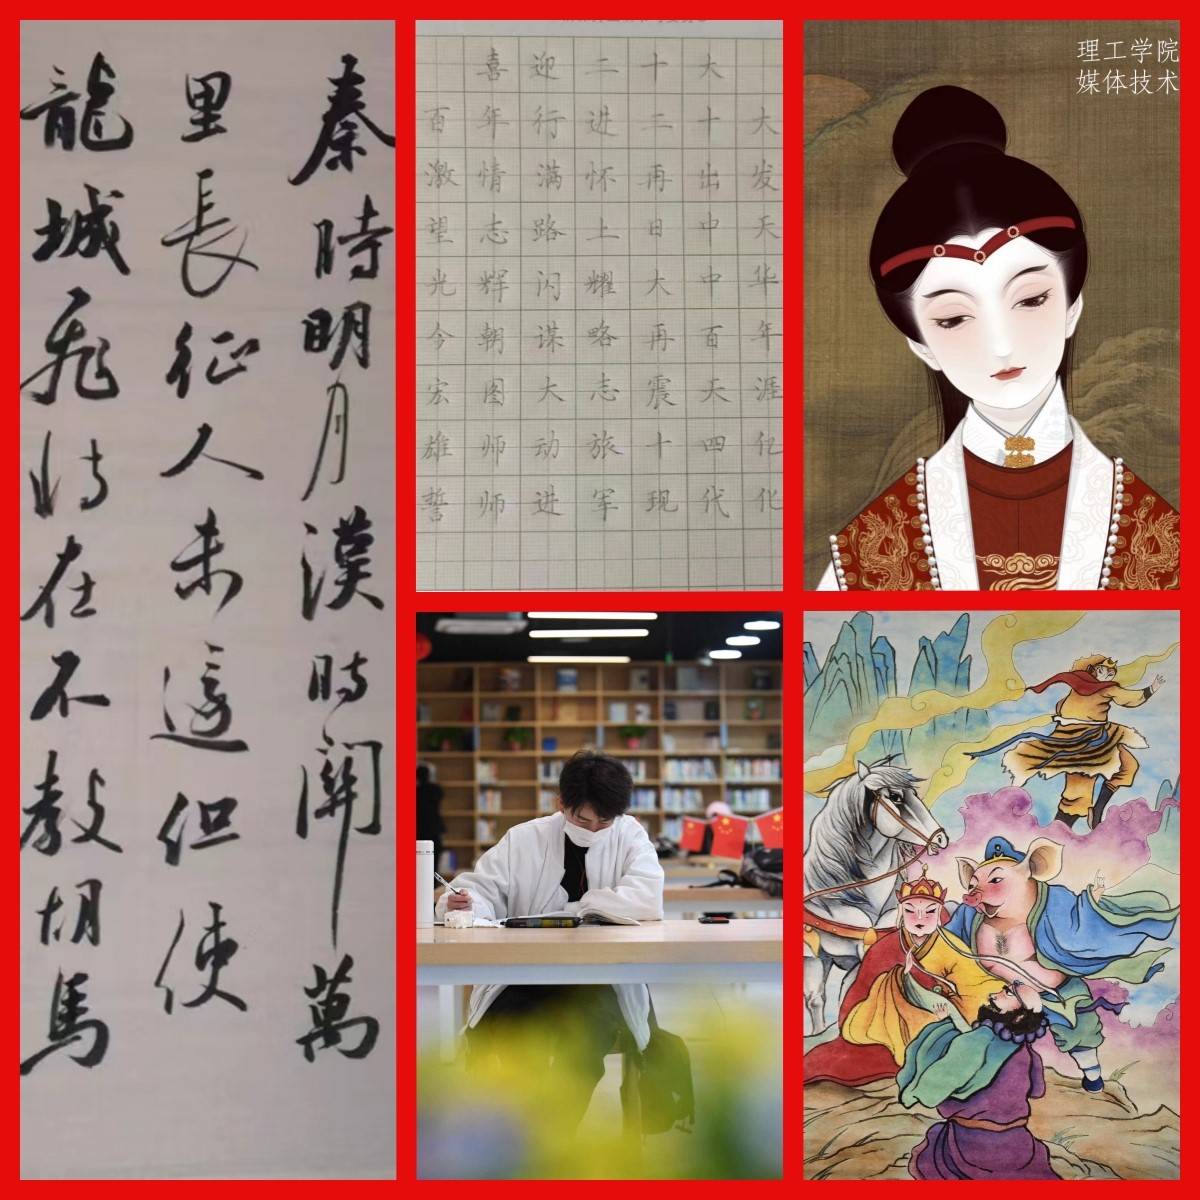 秦時明月漢時關萬
里長征人未還但使
龍城飛将在不教胡馬
喜迎二十大
百年行进二十大
激情满怀再出发
望志路上日中天
光辉闪耀大中华
今朝谋略再百年
宏图大志震天涯
雄师动旅十四亿
誓师进军现代化
理工学院
媒体技术